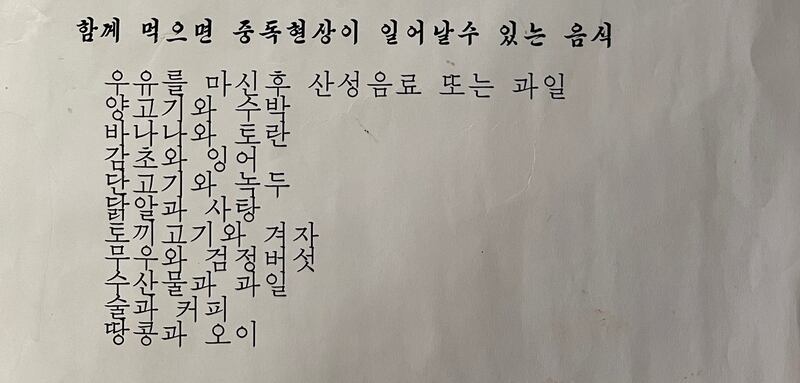 함께 먹으면 중독현상이 일어날수 있는 음식
우유를 마신후 산성음료 또는 과일
양고기와 수박
바나나와 토란
감초와 잉어
단고기와 녹두
닭알과 사탕
토끼고기와 겨자
무우와 검정버섯
수산물과 과일
술과 커피
땅콩과 오이